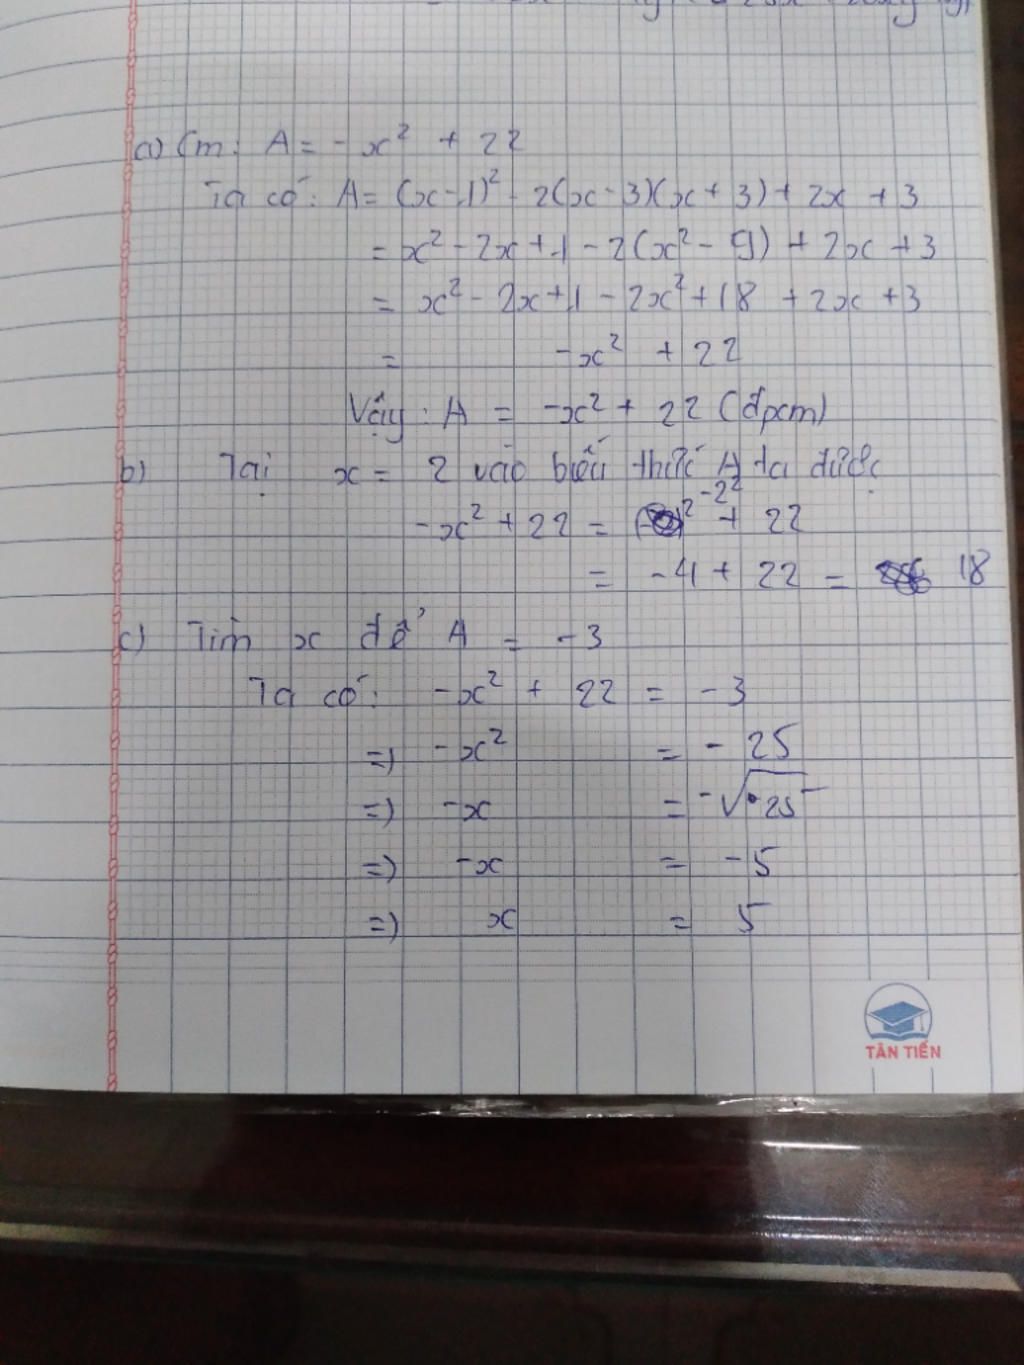 a) Cm: A = -x² + 22
Ta có: A = (x-1)² - 2(x-3)(x+3) + 2x + 3
= x² - 2x + 1 - 2(x² - 9) + 2x + 3
= x² - 2x + 1 - 2x² + 18 + 2x + 3
= -x² + 22
Vậy: A = -x² + 22 (đpcm)
b) Tại x = 2 vào biểu thức A ta được
-x² + 22 = -2² + 22
= -4 + 22 = 18
c) Tìm x để A = -3
Ta có: -x² + 22 = -3
=) -x² = - 25
=) -x = -√25
=) -x = -5
=) x = 5
TÂN TIẾN